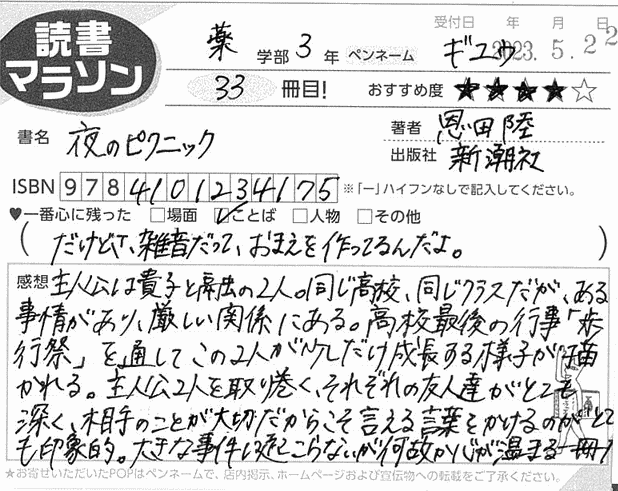 読書
マラソン
受付日 年 月 日
2023.5.22
薬 学部 3 年 ペンネーム ギユウ
33 冊目! おすすめ度 ★★★★☆
書名 夜のピクニック
著者 恩田陸
出版社 新潮社
ISBN 9784101234175 ※「ー」ハイフンなしで記入してください。
♥一番心に残った □場面 ☑ことば □人物 □その他
(だけどさ、雑音だって、おまえを作ってるんだよ。)
感想 主人公は貴子と融の2人。同じ高校、同じクラスだが、ある
事情があり、厳しい関係にある。高校最後の行事「歩
行祭」を通してこの2人が少しだけ成長する様子が描
かれる。主人公2人を取り巻く、それぞれの友人達がとても
深く、相手のことが大切だからこそ言える言葉をかけるのがとて
も印象的。大きな事件は起こらないが何故か心が温まる一冊!
★お寄せいただいたPOPはペンネームで、店内掲示、ホームページおよび宣伝物への転載をご了承ください。